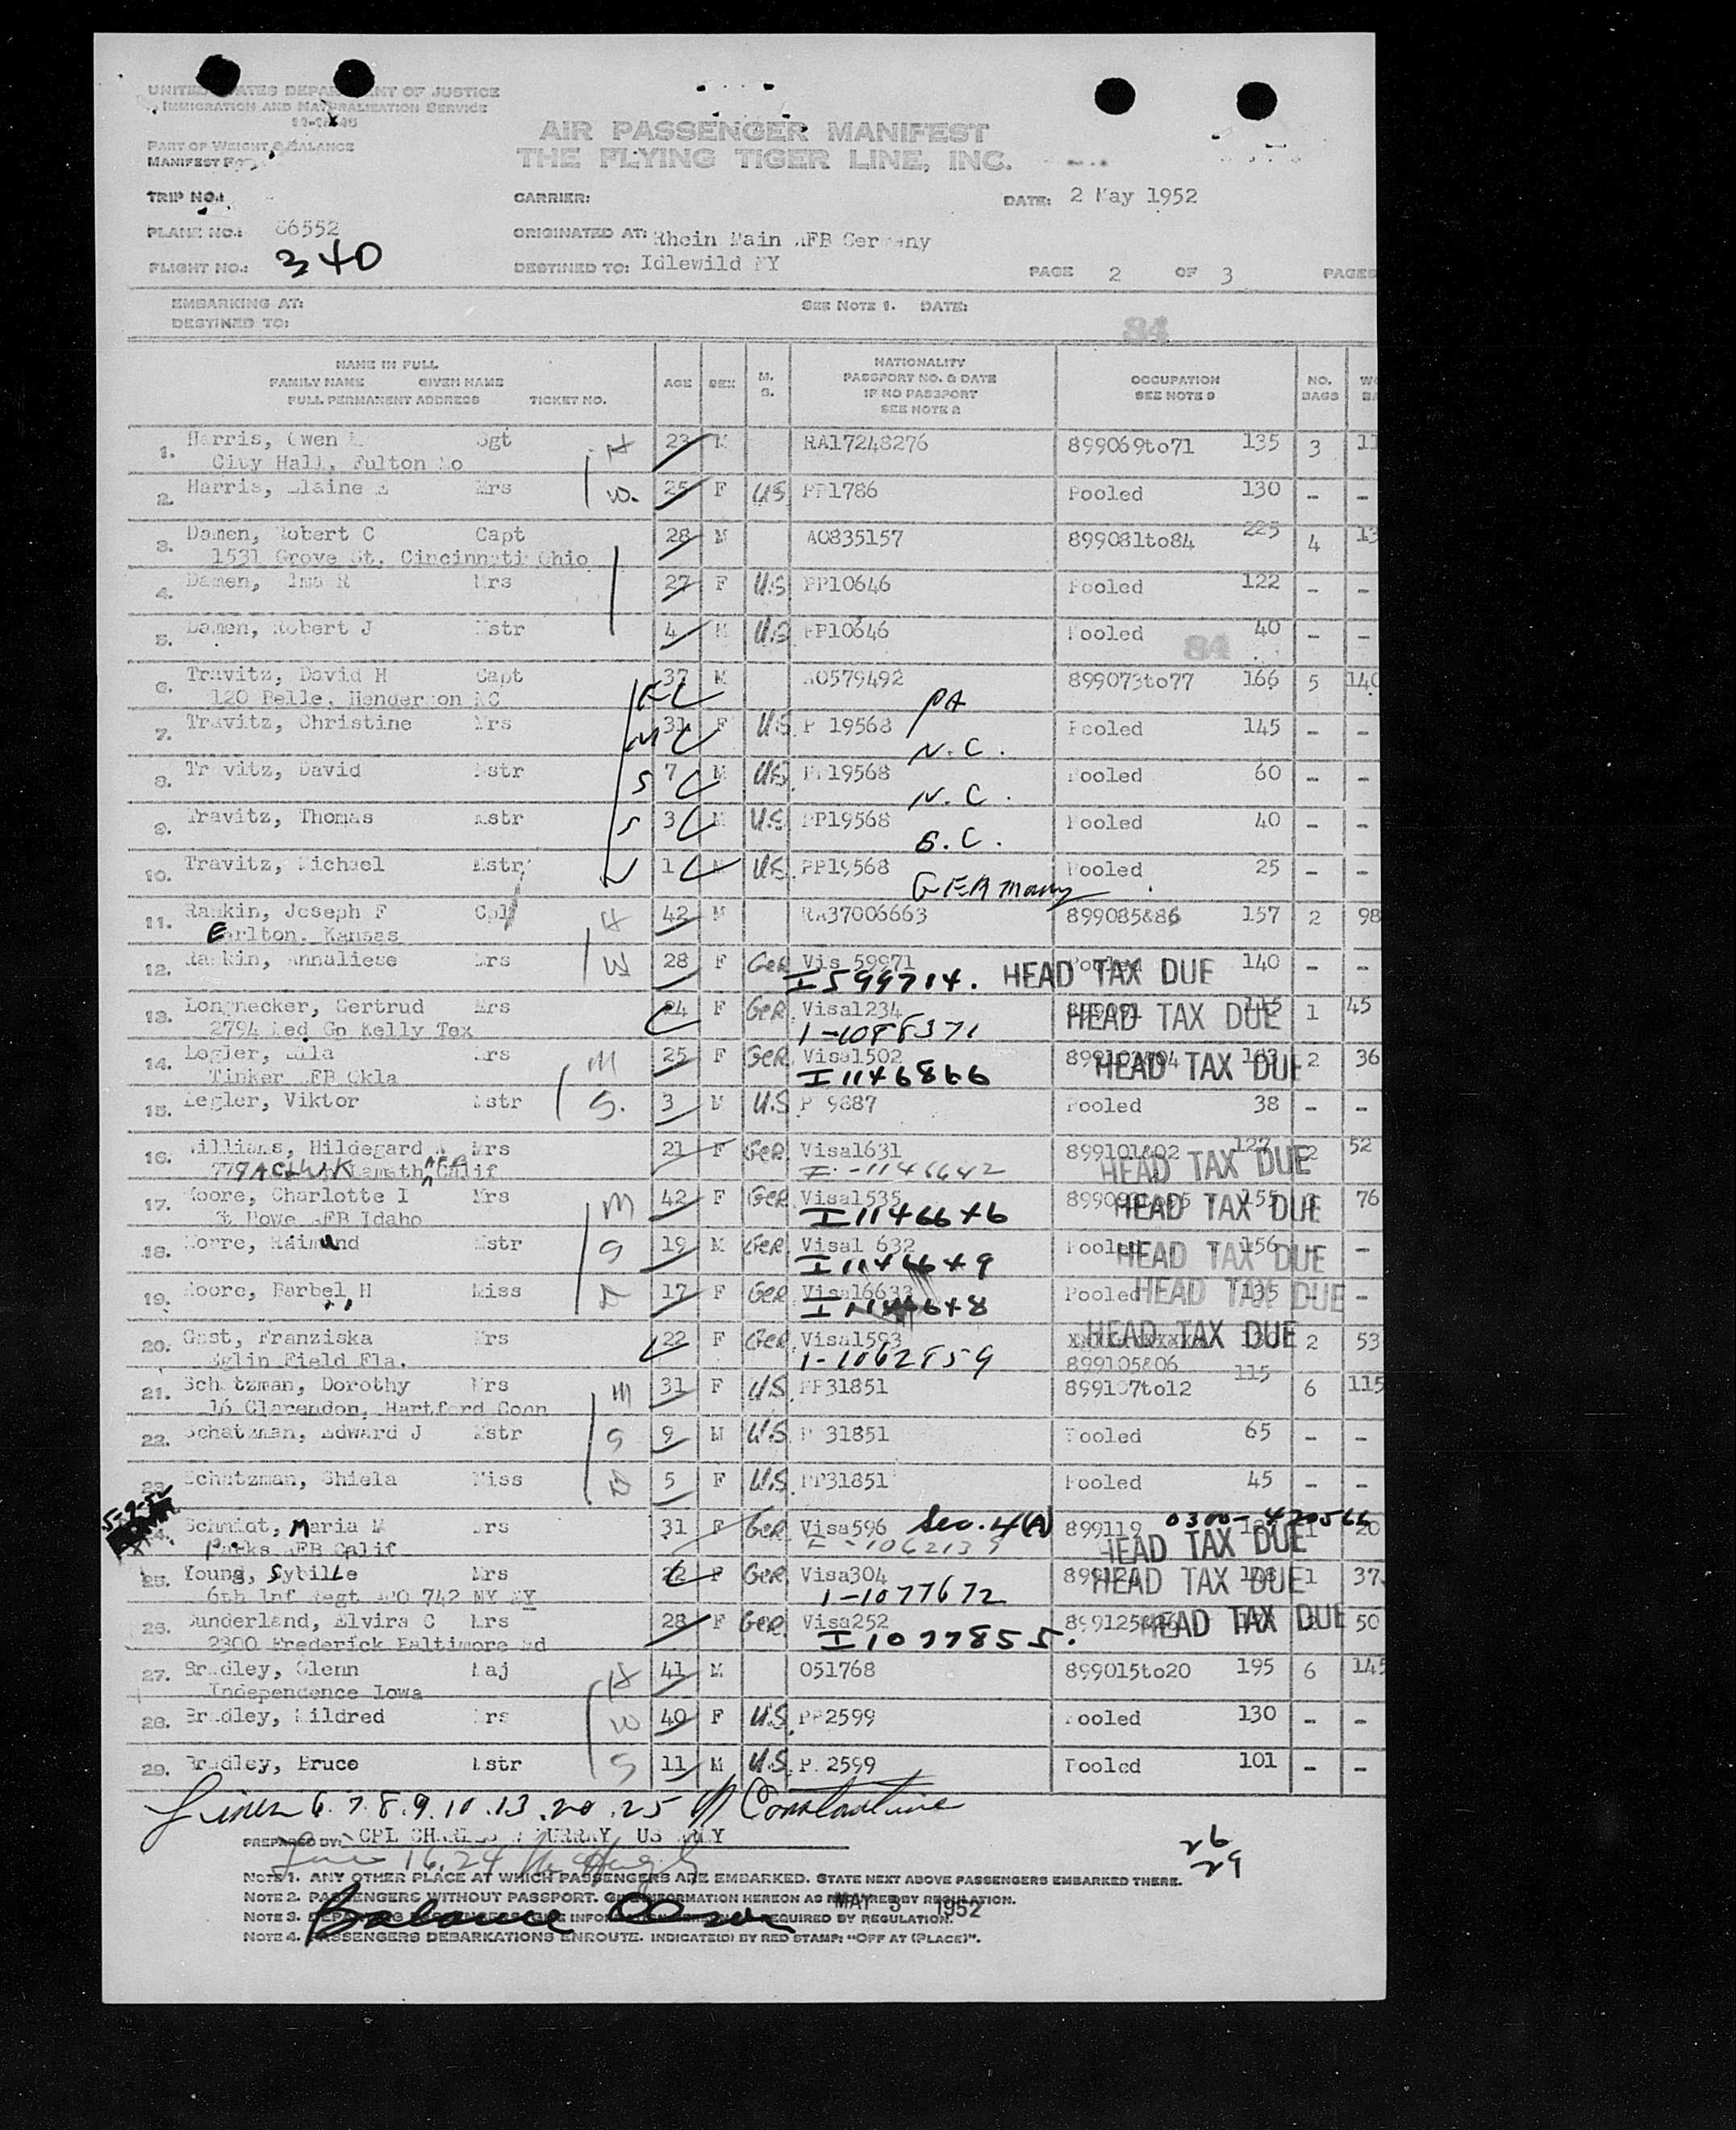 UNITED STATES DEPARTMENT OF JUSTICE
IMMIGRATION AND NATURALIZATION SERVICE
PART OF WEIGHT & BALANCE
MANIFEST
AIR PASSENGER MANIFEST
THE FLYING TIGER LINE, INC.
TRIP NO.: CARRIER: DATE: 2 May 1952
PLANE NO.: 86552 ORIGINATED AT: Rhein Main AFB Germany
FLIGHT NO.: 340 DESTINED TO: Idlewild NY PAGE 2 OF 3 PAGES
EMBARKING AT: SEE NOTE 1. DATE:
DESTINED TO:
84
NAME IN FULL
FAMILY NAME GIVEN NAME
FULL PERMANENT ADDRESS TICKET NO.
AGE SEX M. S.
NATIONALITY
PASSPORT NO. & DATE
IF NO PASSPORT
SEE NOTE 2
OCCUPATION
SEE NOTE 3
NO. BAGS
1. Harris, Owen Sgt H 23 M RA17248276 899069to71 135 3 11
City Hall, Fulton Mo
2. Harris, Elaine E Mrs W. 25 F US PP1786 Pooled 130 - -
3. Damen, Robert C Capt 28 M AO835157 899081to84 225 4 13
1531 Grove St. Cincinnati Ohio
4. Damen, R Mrs 27 F U.S PP10646 Pooled 122 - -
5. Damen, Robert J Mstr 4 M U.S PP10646 Pooled 40 - -
84
6. Travitz, David H Capt 37 M AO579492 899073to77 166 5 140
120 Belle, Henderson NC PA
7. Travitz, Christine Mrs 31 F U.S P 19568 Pooled 145 - -
N.C.
8. Travitz, David Mstr S 7 M US PP19568 Pooled 60 - -
N.C.
9. Travitz, Thomas Mstr S 3 M U.S PP19568 Pooled 40 - -
S.C.
10. Travitz, Michael Mstr 1 M US PP19568 Pooled 25 - -
GERMany
11. Rankin, Joseph F Cpl H 42 M RA37006663 899085&86 157 2 98
Earlton, Kansas
12. Rankin, Annaliese Mrs W 28 F GeR Vis 59971 Pooled 140 - -
I599714. HEAD TAX DUE
13. Longnecker, Gertrud Mrs 24 F GeR Visa1234 115 1 45
2794 Med Gp Kelly Tex 1-1088371 HEAD TAX DUE
14. Legler, Ella Mrs M 25 F GeR Visa1502 2 36
Tinker AFB Okla I1146866 HEAD TAX DUE
15. Legler, Viktor Mstr S. 3 M U.S P 9887 Pooled 38 - -
16. Williams, Hildegard Mrs 21 F GeR Visa1631 899101&02 127 2 52
Klamath AFB Calif I-1146642 HEAD TAX DUE
17. Moore, Charlotte I Mrs M 42 F GeR Visa1535 155 76
Mt Howe AFB Idaho I1146646 HEAD TAX DUE
18. Morre, Raimund Mstr S 19 M GeR Visa1 632 Pooled 156 -
I1146649 HEAD TAX DUE
19. Moore, Barbel H Miss D 17 F GeR Visa16633 Pooled 135 -
I1146648 HEAD TAX DUE
20. Gast, Franziska Mrs 22 F GeR Visa1593 2 53
Eglin Field Fla. 1-1062859 899105&06 HEAD TAX DUE
21. Schatzman, Dorothy Mrs M 31 F US PP31851 899107to12 115 6 115
16 Clarendon, Hartford Conn
22. Schatzman, Edward J Mstr S 9 M U.S P 31851 Pooled 65 - -
23. Schatzman, Shiela Miss D 5 F U.S PP31851 Pooled 45 - -
5-9-52
24. Schmidt, Maria M Mrs 31 F GeR Visa596 Sec. 4(A) 899119 0300-420566 1 20
Parks AFB Calif I-1062139 HEAD TAX DUE
25. Young, Sybille Mrs 22 F GeR Visa304 1 37
6th Inf Regt APO 742 NY NY 1-1077672 HEAD TAX DUE
26. Sunderland, Elvira C Mrs 28 F GeR Visa252 50
2300 Frederick Baltimore Md I1077855. HEAD TAX DUE
27. Bradley, Glenn Maj H 41 M O51768 899015to20 195 6 145
Independence Iowa
28. Bradley, Mildred Mrs W 40 F U.S PP2599 Pooled 130 - -
29. Bradley, Bruce Mstr S 11 M U.S P 2599 Pooled 101 - -
Lines 6.7.8.9.10.13.20.25 Constantine
PREPARED BY: CPL CHARLES MURRAY US ARMY
26
29
NOTE 1. ANY OTHER PLACE AT WHICH PASSENGERS ARE EMBARKED. STATE NEXT ABOVE PASSENGERS EMBARKED THERE.
NOTE 2. PASSENGERS WITHOUT PASSPORT. GIVE INFORMATION HEREON AS REQUIRED BY REGULATION.
MAY 3 1952
NOTE 3. DEPARTING PASSENGERS, GIVE INFORMATION REQUIRED BY REGULATION.
Balance
NOTE 4. PASSENGERS DEBARKATIONS ENROUTE. INDICATE(D) BY RED STAMP: "OFF AT (PLACE)".